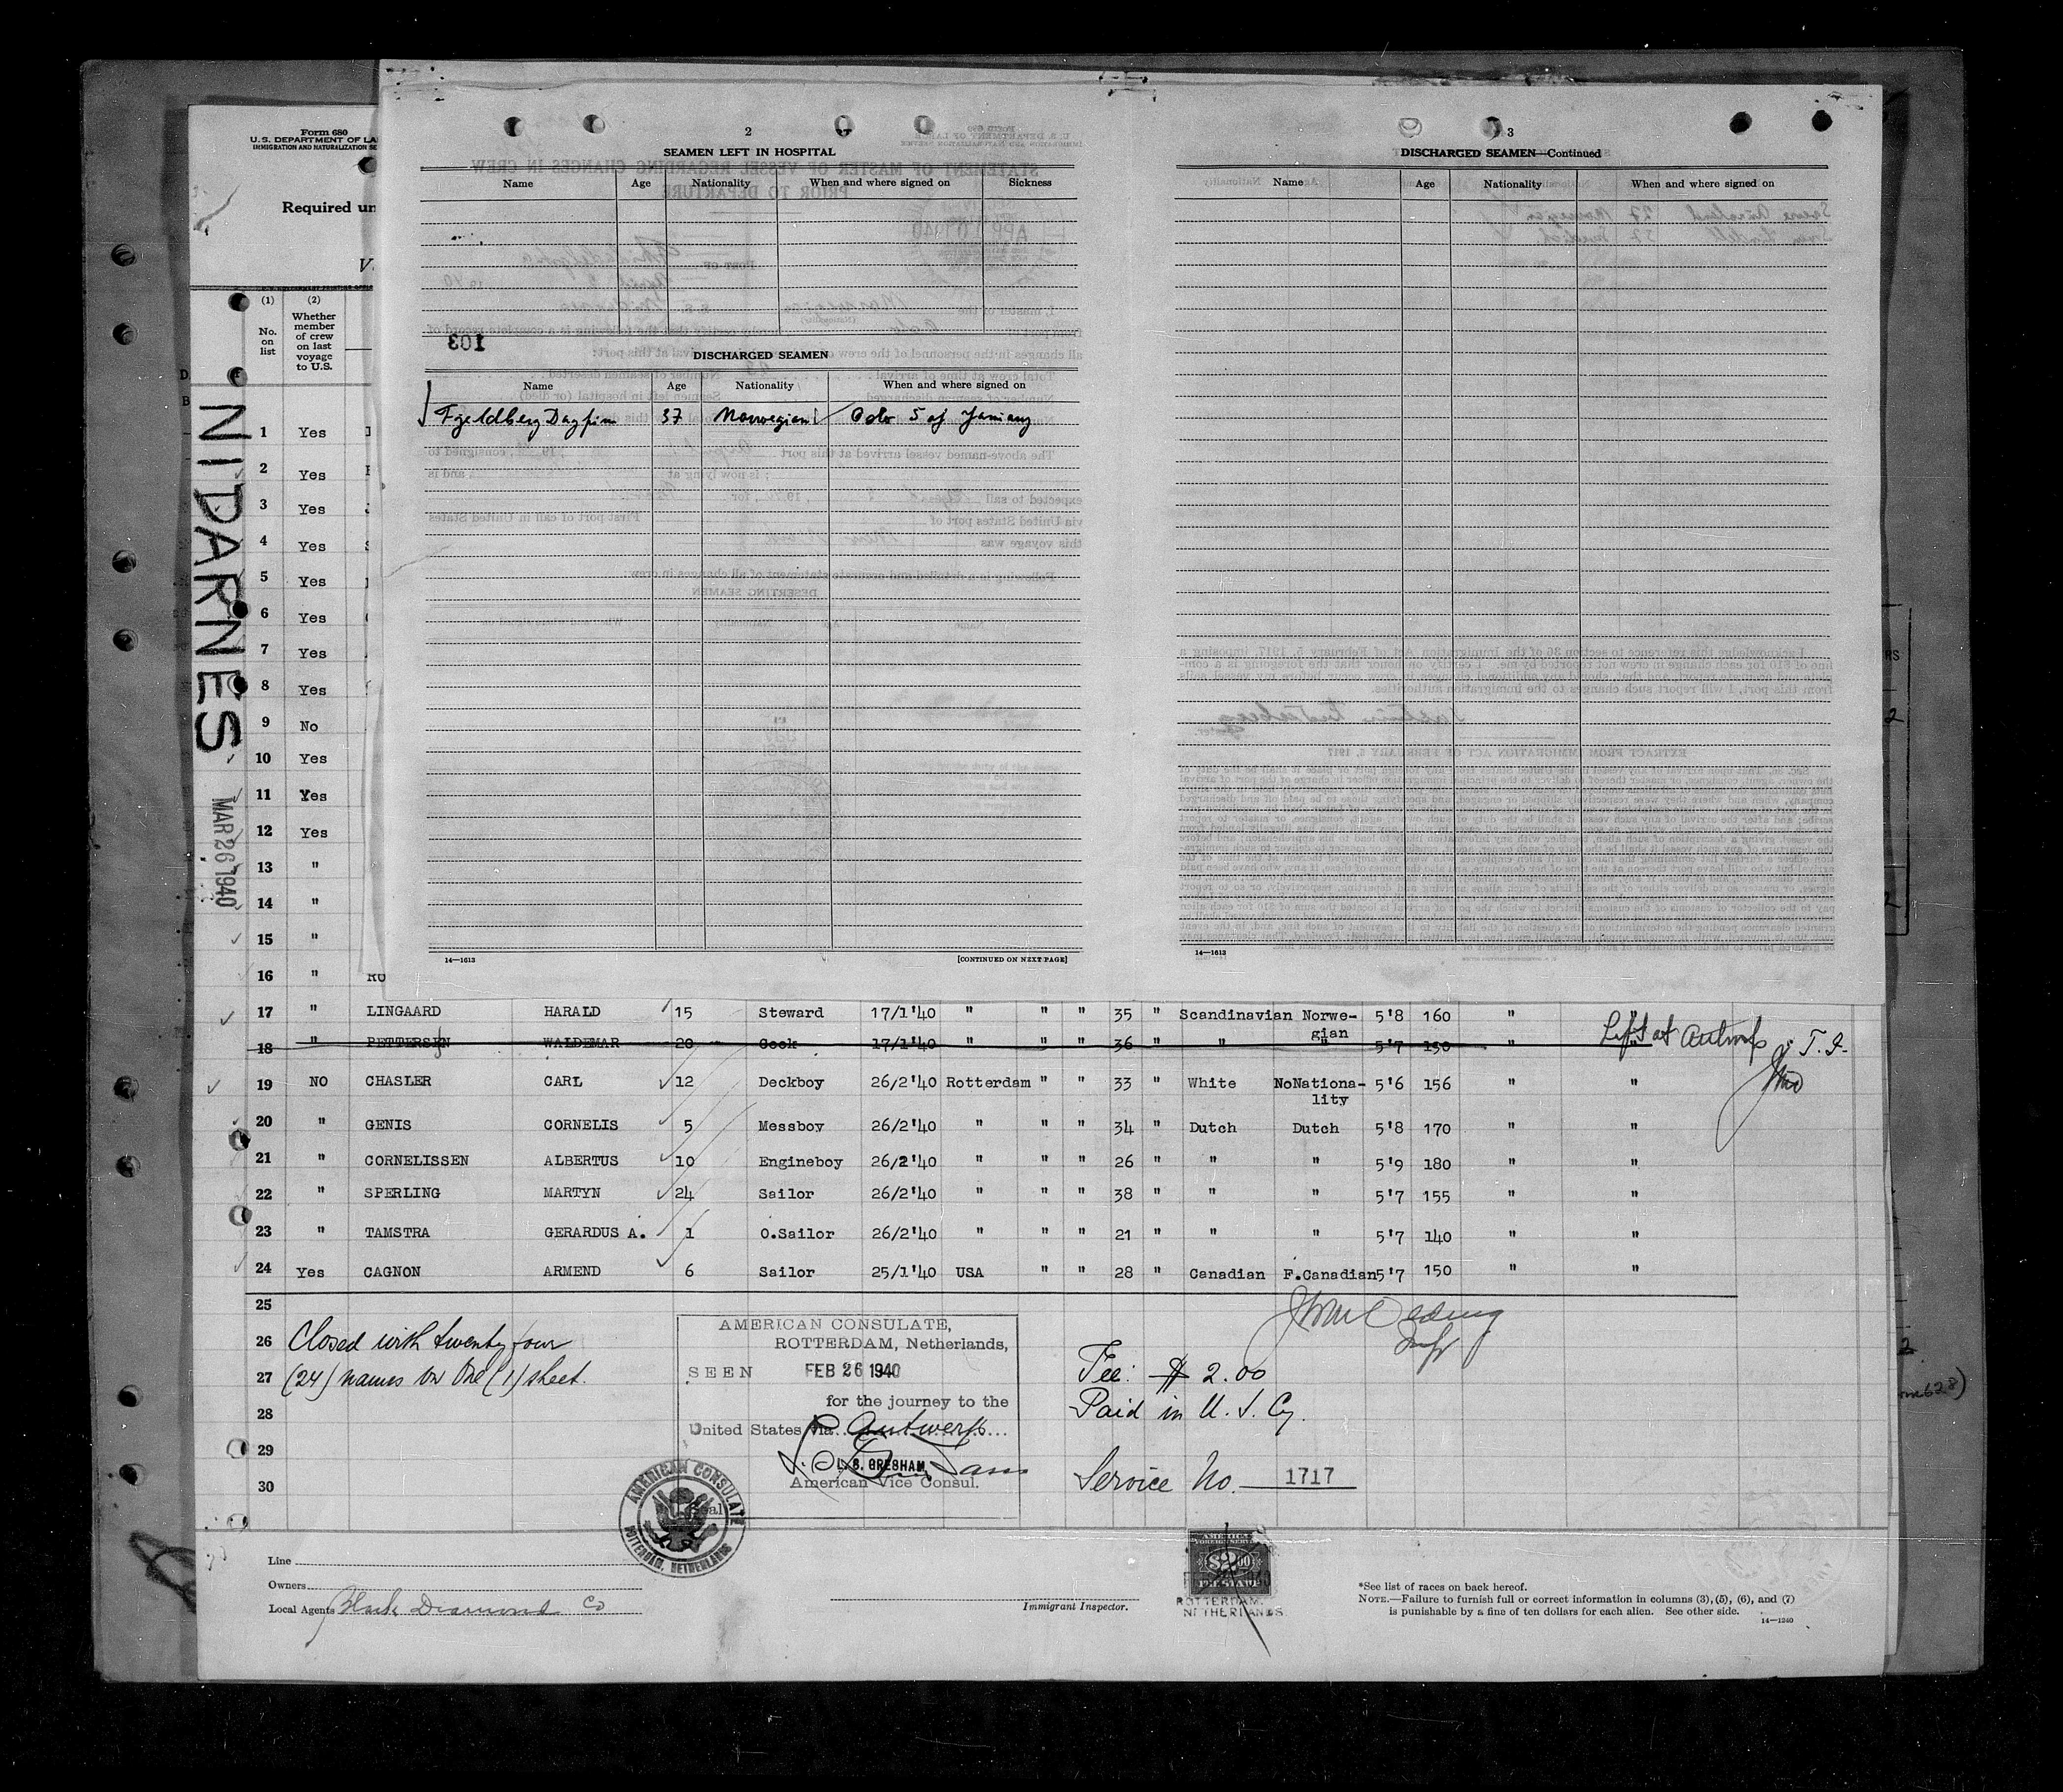 Form 680
U.S. DEPARTMENT OF LA
IMMIGRATION AND NATURALIZATION SE
Required un
(1) (2)
No. on list
Whether member of crew on last voyage to U.S.
NIDARNES
MAR 26 1940
1 Yes
2 Yes
3 Yes
4 Yes
5 Yes
6 Yes
7 Yes
8 Yes
9 No
10 Yes
11 Yes
12 Yes
13 "
14 "
15 "
16 "
2
SEAMEN LEFT IN HOSPITAL
Name Age Nationality When and where signed on Sickness
103
DISCHARGED SEAMEN
Name Age Nationality When and where signed on
Fjeldberg Dagfinn 37 Norwegian Oslo 5 of January
14—1613 [CONTINUED ON NEXT PAGE]
3
DISCHARGED SEAMEN—Continued
Name Age Nationality When and where signed on
14—1613
17 " LINGAARD HARALD 15 Steward 17/1'40 " " " 35 " Scandinavian Norwe-gian 5'8 160 " "
18 " PETTERSEN WALDEMAR 20 Cook 17/1'40 " " " 36 " " " 5'7 150 " Left at Antwerp
19 NO CHASLER CARL 12 Deckboy 26/2'40 Rotterdam " " 33 " White NoNationa-lity 5'6 156 " "
20 " GENIS CORNELIS 5 Messboy 26/2'40 " " " 34 " Dutch Dutch 5'8 170 " "
21 " CORNELISSEN ALBERTUS 10 Engineboy 26/2'40 " " " 26 " " " 5'9 180 " "
22 " SPERLING MARTYN 24 Sailor 26/2'40 " " " 38 " " " 5'7 155 " "
23 " TAMSTRA GERARDUS A. 1 O.Sailor 26/2'40 " " " 21 " " " 5'7 140 " "
24 Yes CAGNON ARMEND 6 Sailor 25/1'40 USA " " 28 " Canadian F.Canadian 5'7 150 " "
25
26 Closed with twenty four
27 (24) names on One (1) sheet.
28
29
30
AMERICAN CONSULATE,
ROTTERDAM, Netherlands,
SEEN FEB 26 1940
for the journey to the
United States via Antwerp
L. S. GRESHAM
American Vice Consul.
Seal
AMERICAN CONSULATE
ROTTERDAM, NETHERLANDS
Fee: $ 2.00
Paid in U. S. Cy.
Service No. 1717
Line
Owners
Local Agents Black Diamond Co
Immigrant Inspector.
$2.00
ROTTERDAM,
NETHERLANDS.
*See list of races on back hereof.
NOTE.—Failure to furnish full or correct information in columns (3), (5), (6), and (7)
is punishable by a fine of ten dollars for each alien. See other side.
14—1240